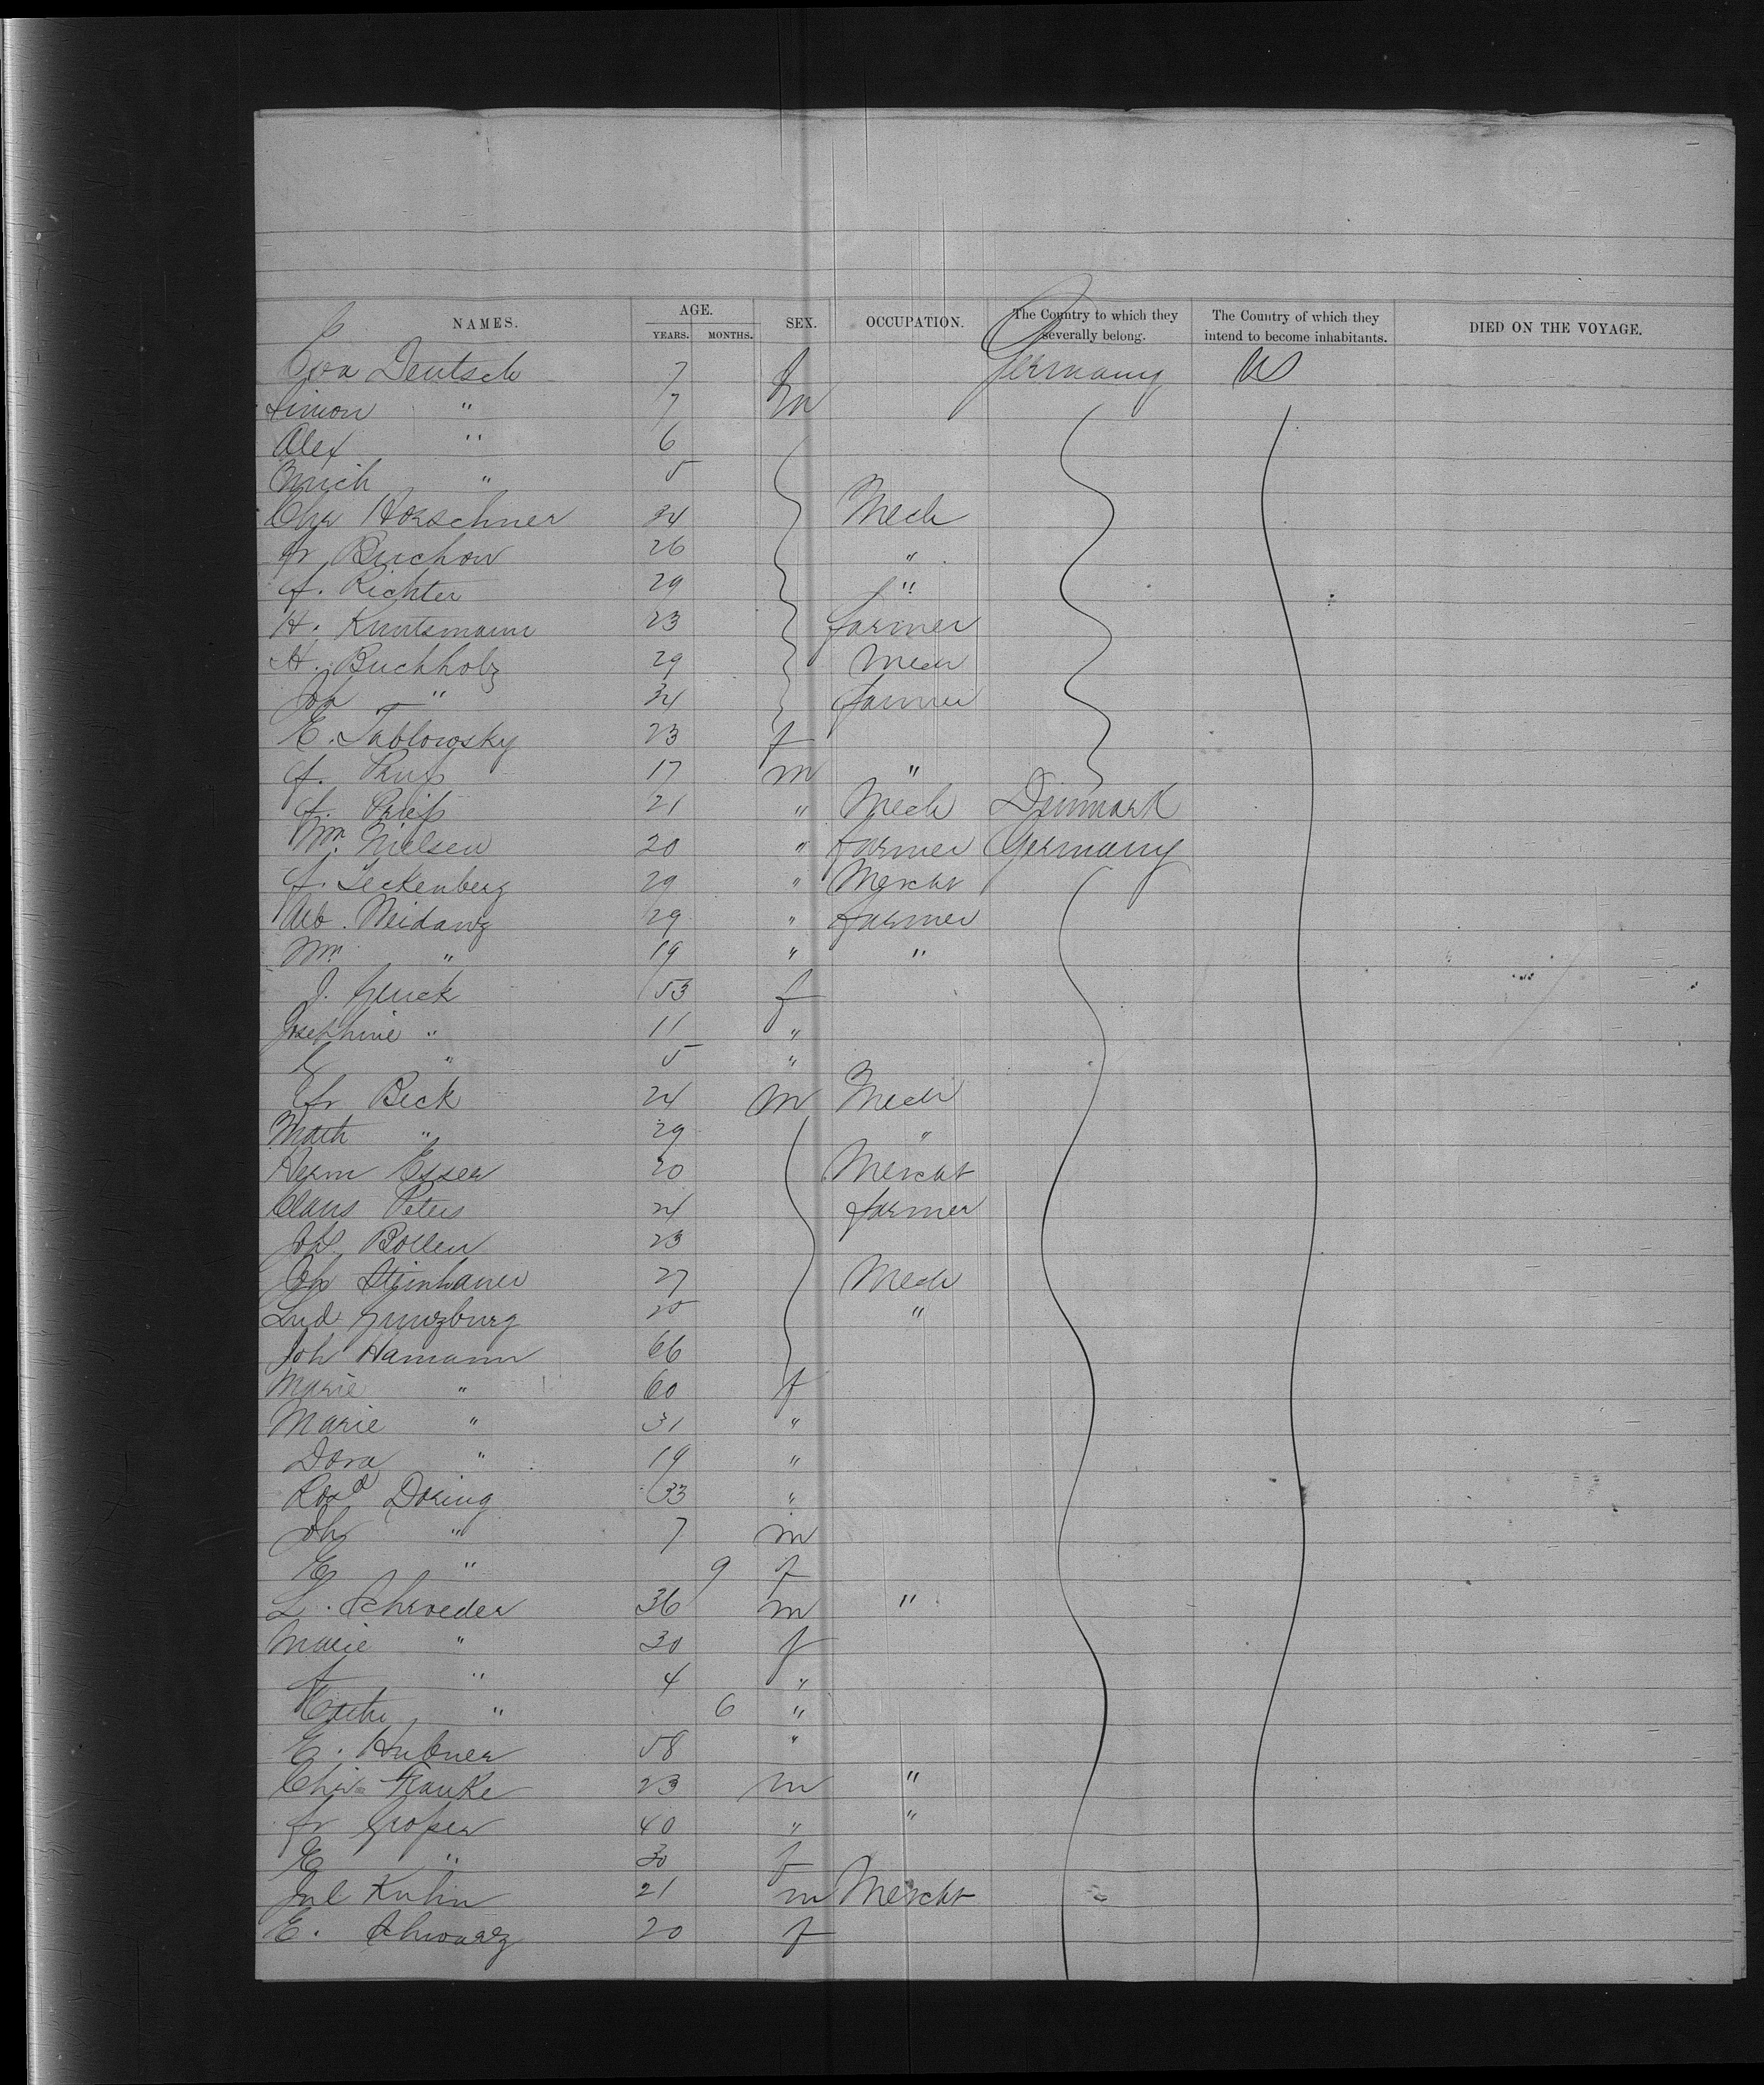 NAMES. AGE. YEARS. MONTHS. SEX. OCCUPATION. The Country to which they severally belong. The Country of which they intend to become inhabitants. DIED ON THE VOYAGE.
Eva Deutsch 7 f Germany US
Simon " 7 m
Alex " 6
Emich " 5
Chr Horschner 34 Mech
Fr Buchow 26 "
f. Richter 29 "
H. Kuntsmann 23 farmer
H. Buchholz 29 Mech
Joh " 34 farmer
E. Tablowsky 23 f
f. 17 m "
f. Prieß 21 " Mech Denmark
Wm. Nielsen 20 " farmer Germany
f. Teckenberg 29 " Mercht
Alb. Neidawz 29 " farmer
Wm " 19 " "
J. Gluck 53 f
Josephine " 11 "
" 5 "
Fr Beck 24 m Mech
Math " 29 "
Herm Esser 20 Mercht
Claus Peters 24 farmer
Joh. Bollen 23
Joh Steinhauer 27 Mech
Lud Gunzburg 25 "
Joh Hamann 66
Marie " 60 f
Marie " 31 "
Dora " 19 "
Rosa Doring 33 "
Joh " 7 m
E " 9 f
L. Schroeder 36 m "
Marie " 30 f
f " 4 "
Kathe " 6 "
E. Hubner 58 "
Chr Franke 23 m "
fr Groper 40 " "
E " 30 f
Jul Kuhn 21 m Mercht
E. Schwarz 20 f